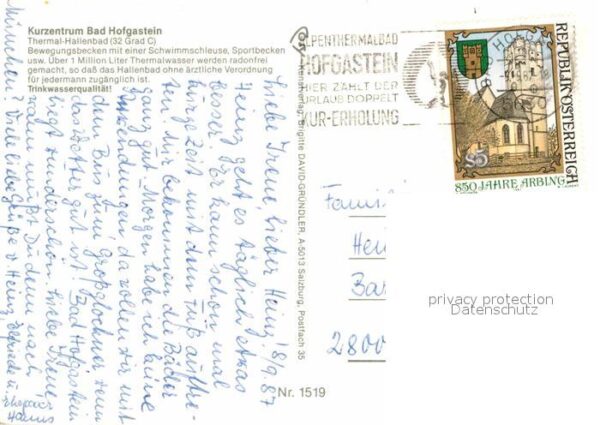 Kurzentrum Bad Hofgastein
Thermal-Hallenbad (32 Grad C)
Bewegungsbecken mit einer Schwimmschleuse, Sportbecken
usw. Über 1 Million Liter Thermalwasser werden radonfrei
gemacht, so daß das Hallenbad ohne ärztliche Verordnung
für jedermann zugänglich ist.
Trinkwasserqualität!
ALPENTHERMALBAD
HOFGASTEIN
HIER ZÄHLT DER
URLAUB DOPPELT
KUR-ERHOLUNG
REPUBLIK ÖSTERREICH
S5
850 JAHRE ARBING
Brigitte DAVID-GRÜNDLER, A-5013 Salzburg, Postfach 35
Nr. 1519
18/9.87
Liebe Irene, lieber Heinz!
Heinz geht es täglich etwas
besser. Er kann schon mal
kurze Zeit mit dem Fuß auftre-
ten. Wir bekommen die Bäder
ganz gut. Morgen habe ich keine
Anwendungen da wollen wir mit
dem Bus zum Großglockner wenn
das Wetter gut ist. Bad Hofgastein
ist wunderschön. Liebe Irene
Bist Du denn nach
München? Viele liebe Grüße v. Heinz,
Famil
Hei
Ba
2800
privacy protection
Datenschutz